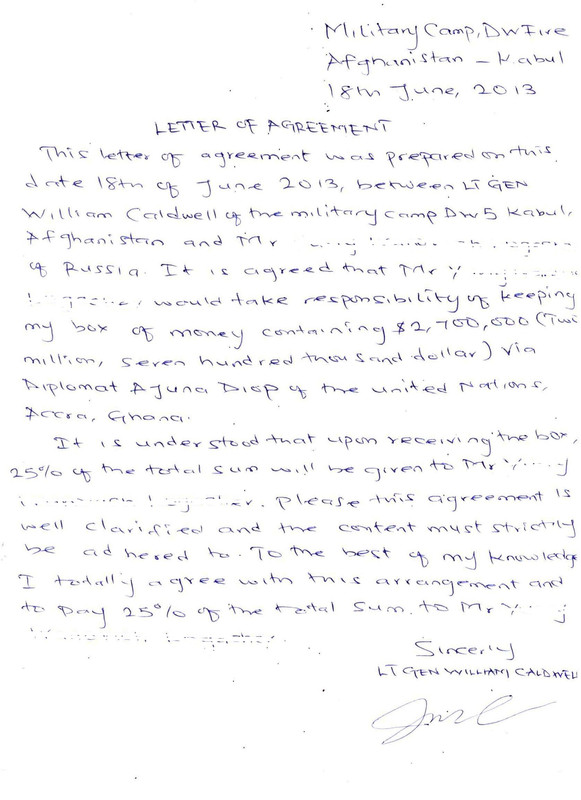 Military Camp, DW Five
Afghanistan - Kabul
18th June, 2013
LETTER OF AGREEMENT
This letter of agreement was prepared on this
date 18th of June 2013, between LT GEN
William Caldwell of the military camp DW5 Kabul,
Afghanistan and Mr
of Russia. It is agreed that Mr Y
would take responsibility of keeping
my box of money containing $2,700,000 (Two
million, seven hundred thousand dollar) via
Diplomat Ajuna Diop of the United Nations,
Accra, Ghana.
It is understood that upon receiving the box,
25% of the total sum will be given to Mr Y
please this agreement is
well clarified and the content must strictly
be adhered to. To the best of my knowledge
I totally agree with this arrangement and
to pay 25% of the total sum. to Mr Y
Sincerly
LT GEN WILLIAM CALDWELL